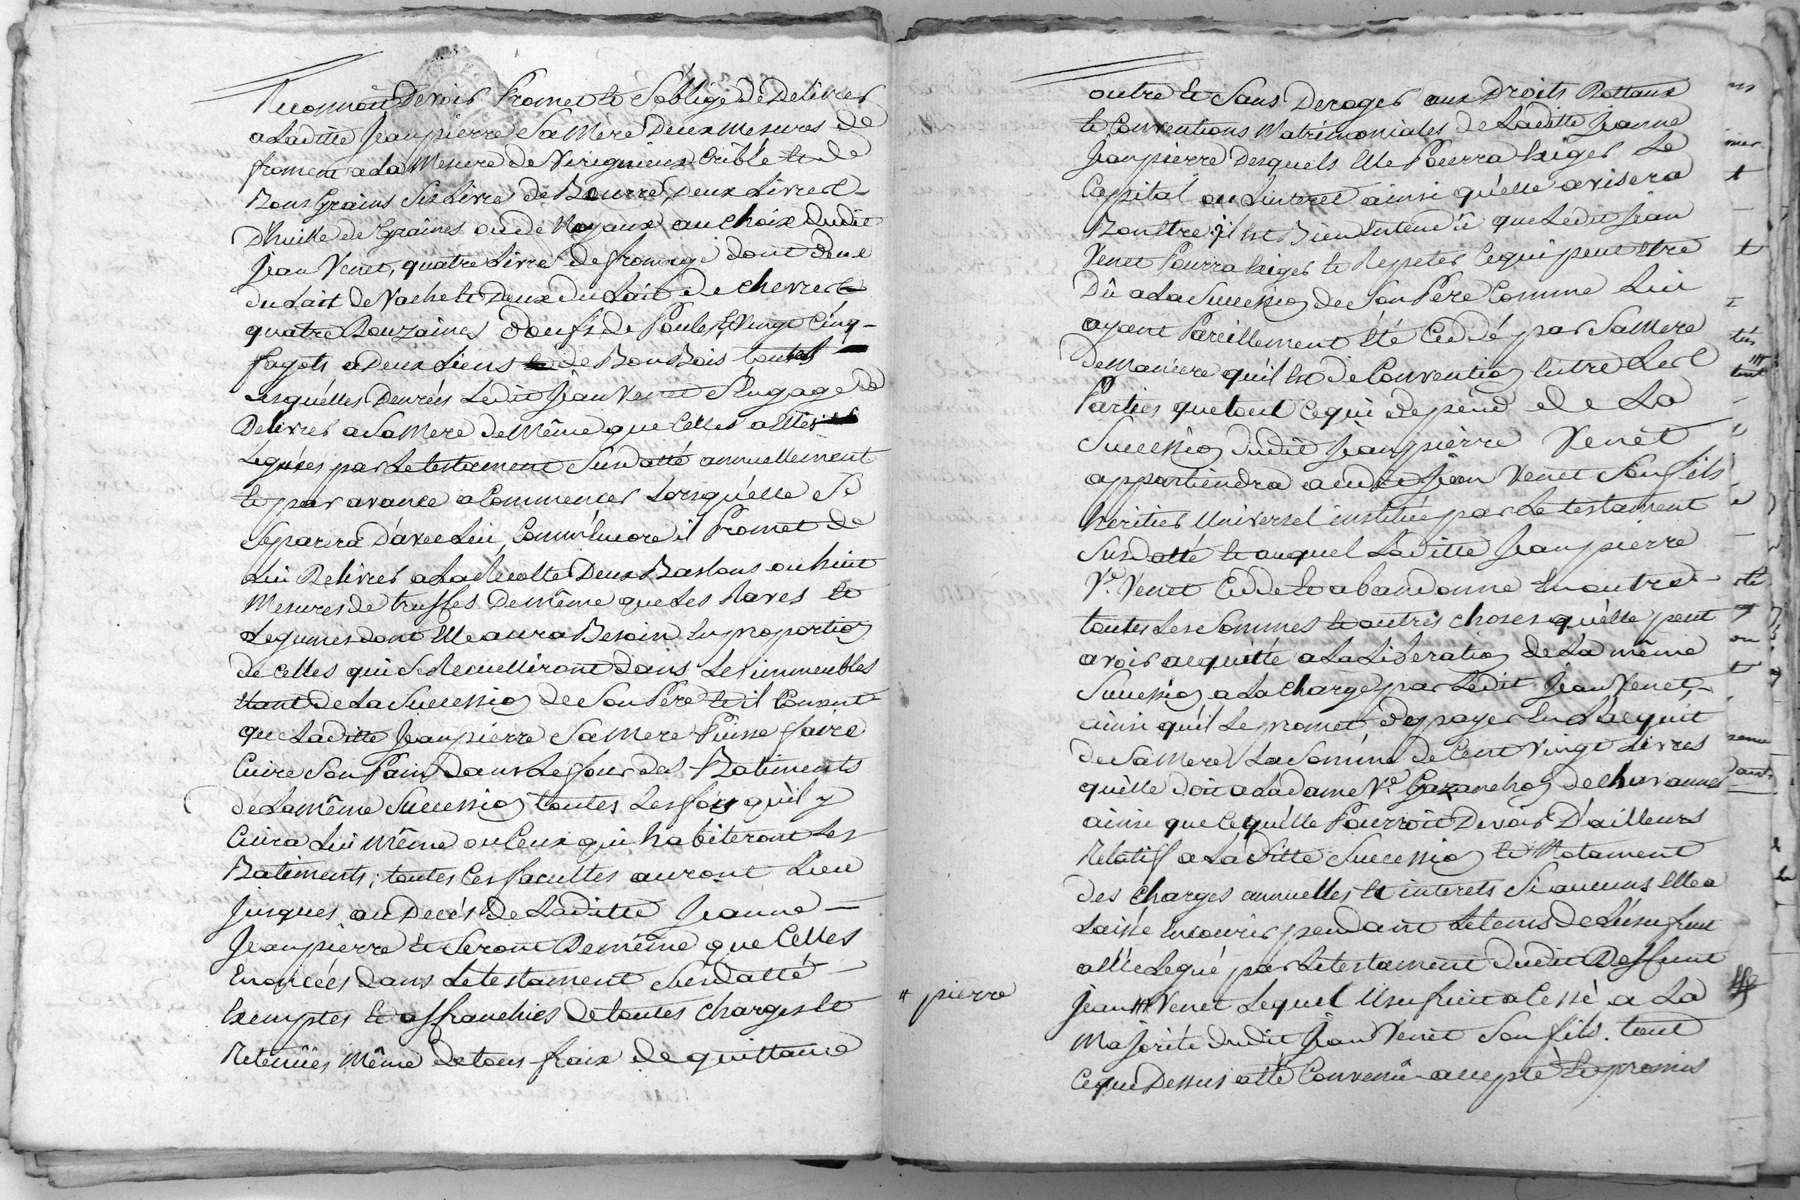 Reconnoit Devoir Promet et Soblige de Delivrer
a Laditte Jeanpierre Sa Mere Deux Mesures de
froment a La Mesure de Virignieux Criblé et de
Bons Grains Six Livres de Beurre, Deux Livres
D'huille de Graines ou de Noyaux au choix dudit
Jean Venet, quatre Livre de fromage dont deux
du Lait de Vache et Deux du Lait de chevre et
quatre Douzaines d'oeufs de Poules, Vingt Cinq
fagots a Deux Liens de Bon Bois toutes
Lesquélles Denrées Ledit Jean Venet S'Engage de
Delivrer a Sa Mere de Même que Celles a Elle
Leguées par Le testament Susdatté annuellement
et par avance a Commencer Lorsqu'elle Se
Separera D'avec Lui, Comm'Encore il Promet de
Lui Delivrer a La Recolte Deux Barlons ou huit
Mesures de truffes De même que Les Raves et
Legumes dont Elle aura Besoin En proportion
de celles qui Se Recuelliront dans Les immeubles
Etant de La Succession de Son Pere et il Convient
que Laditte Jeanpierre Sa Mere Puisse faire
Cuire Son Pain dans Le four des Batiments
de La même Succession toutes Les fois qu'il y
Cuira Lui Même ou Ceux qui habiteront Les
Batiments; toutes Ces facultes auront Lieu
Jusques au Decès de Laditte Jeanne
Jeanpierre et Seront De même que Celles
Enoncées dans Le testament Susdatté
Exemptes et affranchies de toutes charges et
Retenües Même de tous fraix de quittance
outre Et Sans Deroger aux Droits Dottaux
et Conventions Matrimoniales de Laditte Jeanne
Jeanpierre Desquels Elle Pourra Exiger Le
Capital ou L'interet ainsi qu'elle avisera
Bon Etre; il Est Bien Entendû que Ledit Jean
Venet Pourra Exiger et Repeter Ce qui peut Etre
Dû a La Succession de Son Pere Comme Lui
ayant Pareillement Eté Cedé par Sa Mere
de Maniere qu'il Est de Convention Entre Les
Parties que tout Ce qui depend de La
Succession dudit Jeanpierre Venet
appartiendra audit Jean Venet Son fils
heritier Universel institué par Le testament
Susdatté et auquel Laditte Jeanpierre
Ve. Venet Cede et abandonne En outre
toutes Les Sommes et autres choses qu'elle peut
avoir acquitté a La Liberation de La même
Succession a La charge par Ledit Jean Venet,
ainsi qu'il Le promet de payer En L'acquit
de Sa Mere La Somme de Cent Vingt Livres
qu'elle doit a La dame Ve. Gazanchon de chavannes
ainsi que Ce qu'elle Pourroit Devoir D'ailleurs
Relatif a Laditte Succession et Notament
des charges annuelles Et interets Si aucuns Elle a
Laissé Encourir pendant Le tems de L'usufruit
a Elle Legué par Le testament dudit Deffunt
# pierre
Jean # Venet Lequel Usufruit a Cessé a La
Majorité dudit Jean Venet Son fils. tout
Ce que Dessus a Eté Convenu accepté et promis